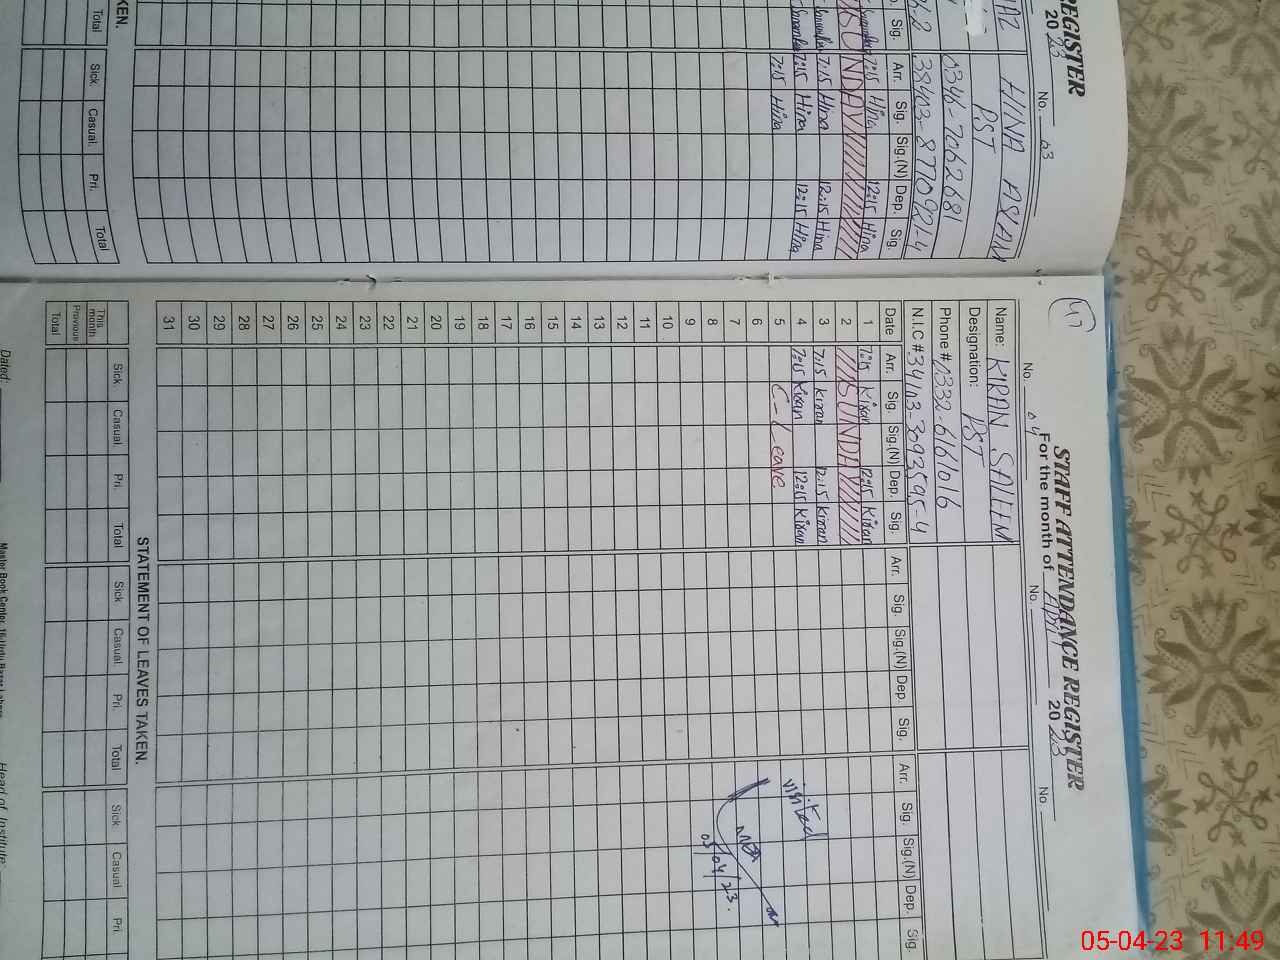 REGISTER
2023
No. 03
HINA ASLAM
PST
0346-7062681
Sig. Arr. Sig. Sig.(N) Dep. Sig.
7:15 Hina 12:15 Hina
SUNDAY
7:15 Hina 12:15 Hina
7:15 Hina 12:15 Hina
7:15 Hina
KEN.
Total Sick. Casual. Pri. Total
47
STAFF ATTENDANCE REGISTER
For the month of April 2023
No. 04 No. No.
Name: KIRAN SALEEM
Designation: PST
Phone # 0332-6161016
N.I.C # 34103-3093595-4
Date Arr. Sig. Sig.(N) Dep. Sig. Arr. Sig. Sig.(N) Dep. Sig. Arr. Sig. Sig.(N) Dep. Sig.
1 7:15 Kiran 12:15 Kiran
2 SUNDAY
3 7:15 Kiran 12:15 Kiran
4 7:15 Kiran 12:15 Kiran
5 C-Leave
6
7
8
9
10
11
12
13
14
15
16
17
18
19
20
21
22
23
24
25
26
27
28
29
30
31
visited
05/04/23.
STATEMENT OF LEAVES TAKEN.
Sick. Casual. Pri. Total Sick Casual. Pri. Total Sick Casual Pri.
This month
Previous
Total
Dated:
Head of Institute
05-04-23 11:49